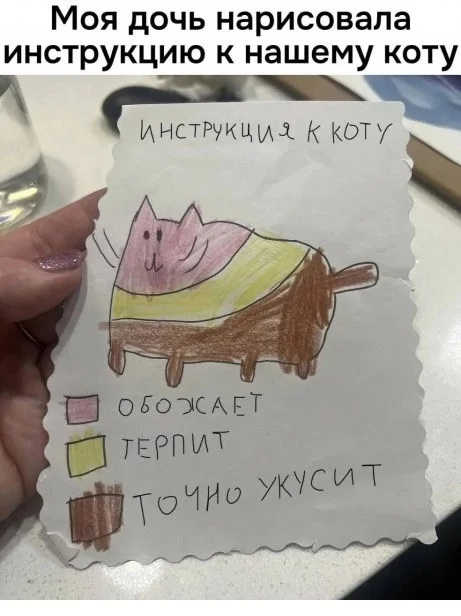 Моя дочь нарисовала
инструкцию к нашему коту
ИНСТРУКЦИЯ К КОТУ
ОБОЖАЕТ
ТЕРПИТ
ТОЧНО УКУСИТ